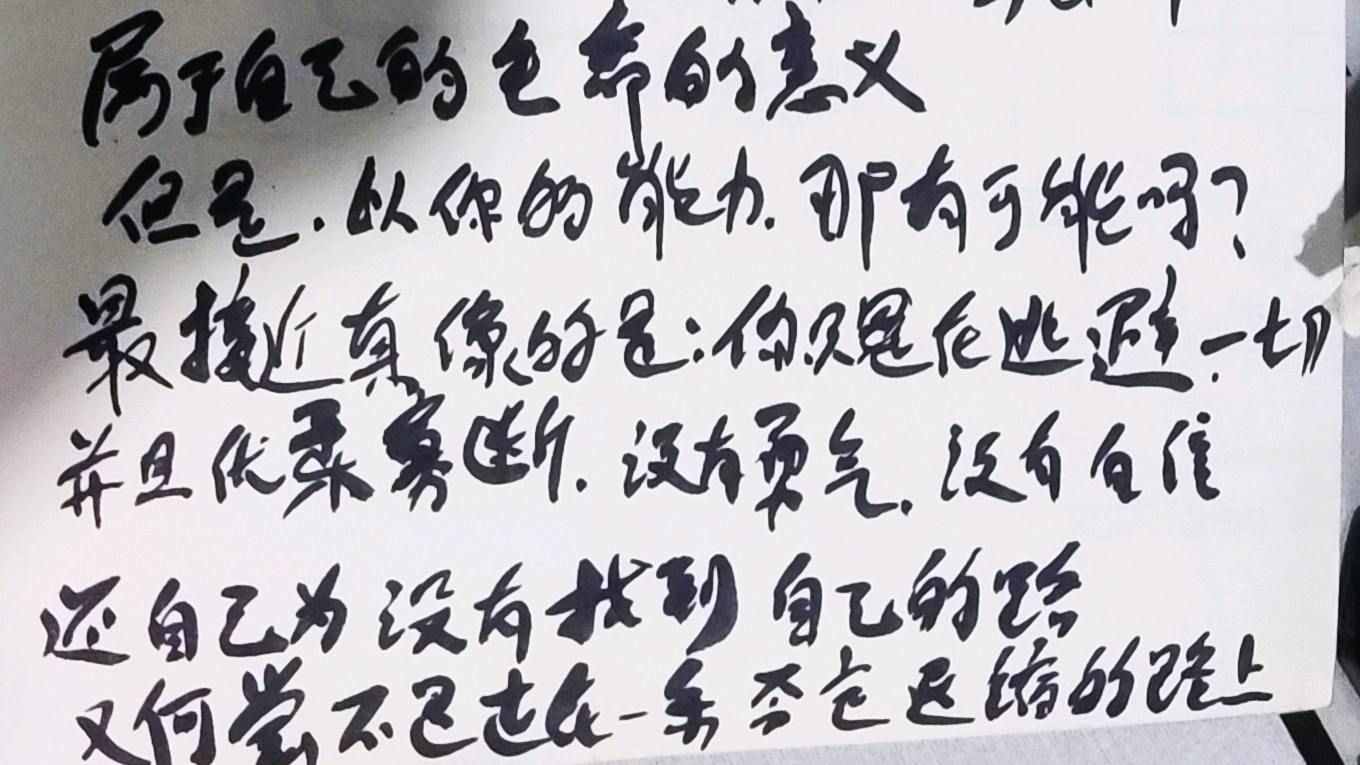 属于自己的生命的意义
但是.以你的能力.那有可能吗?
最接近真像的是:你只是在逃避.一切
并且优柔寡断.没有勇气.没有自信
还自己为没有找到自己的路
又何尝不是走在一条否定退缩的路上